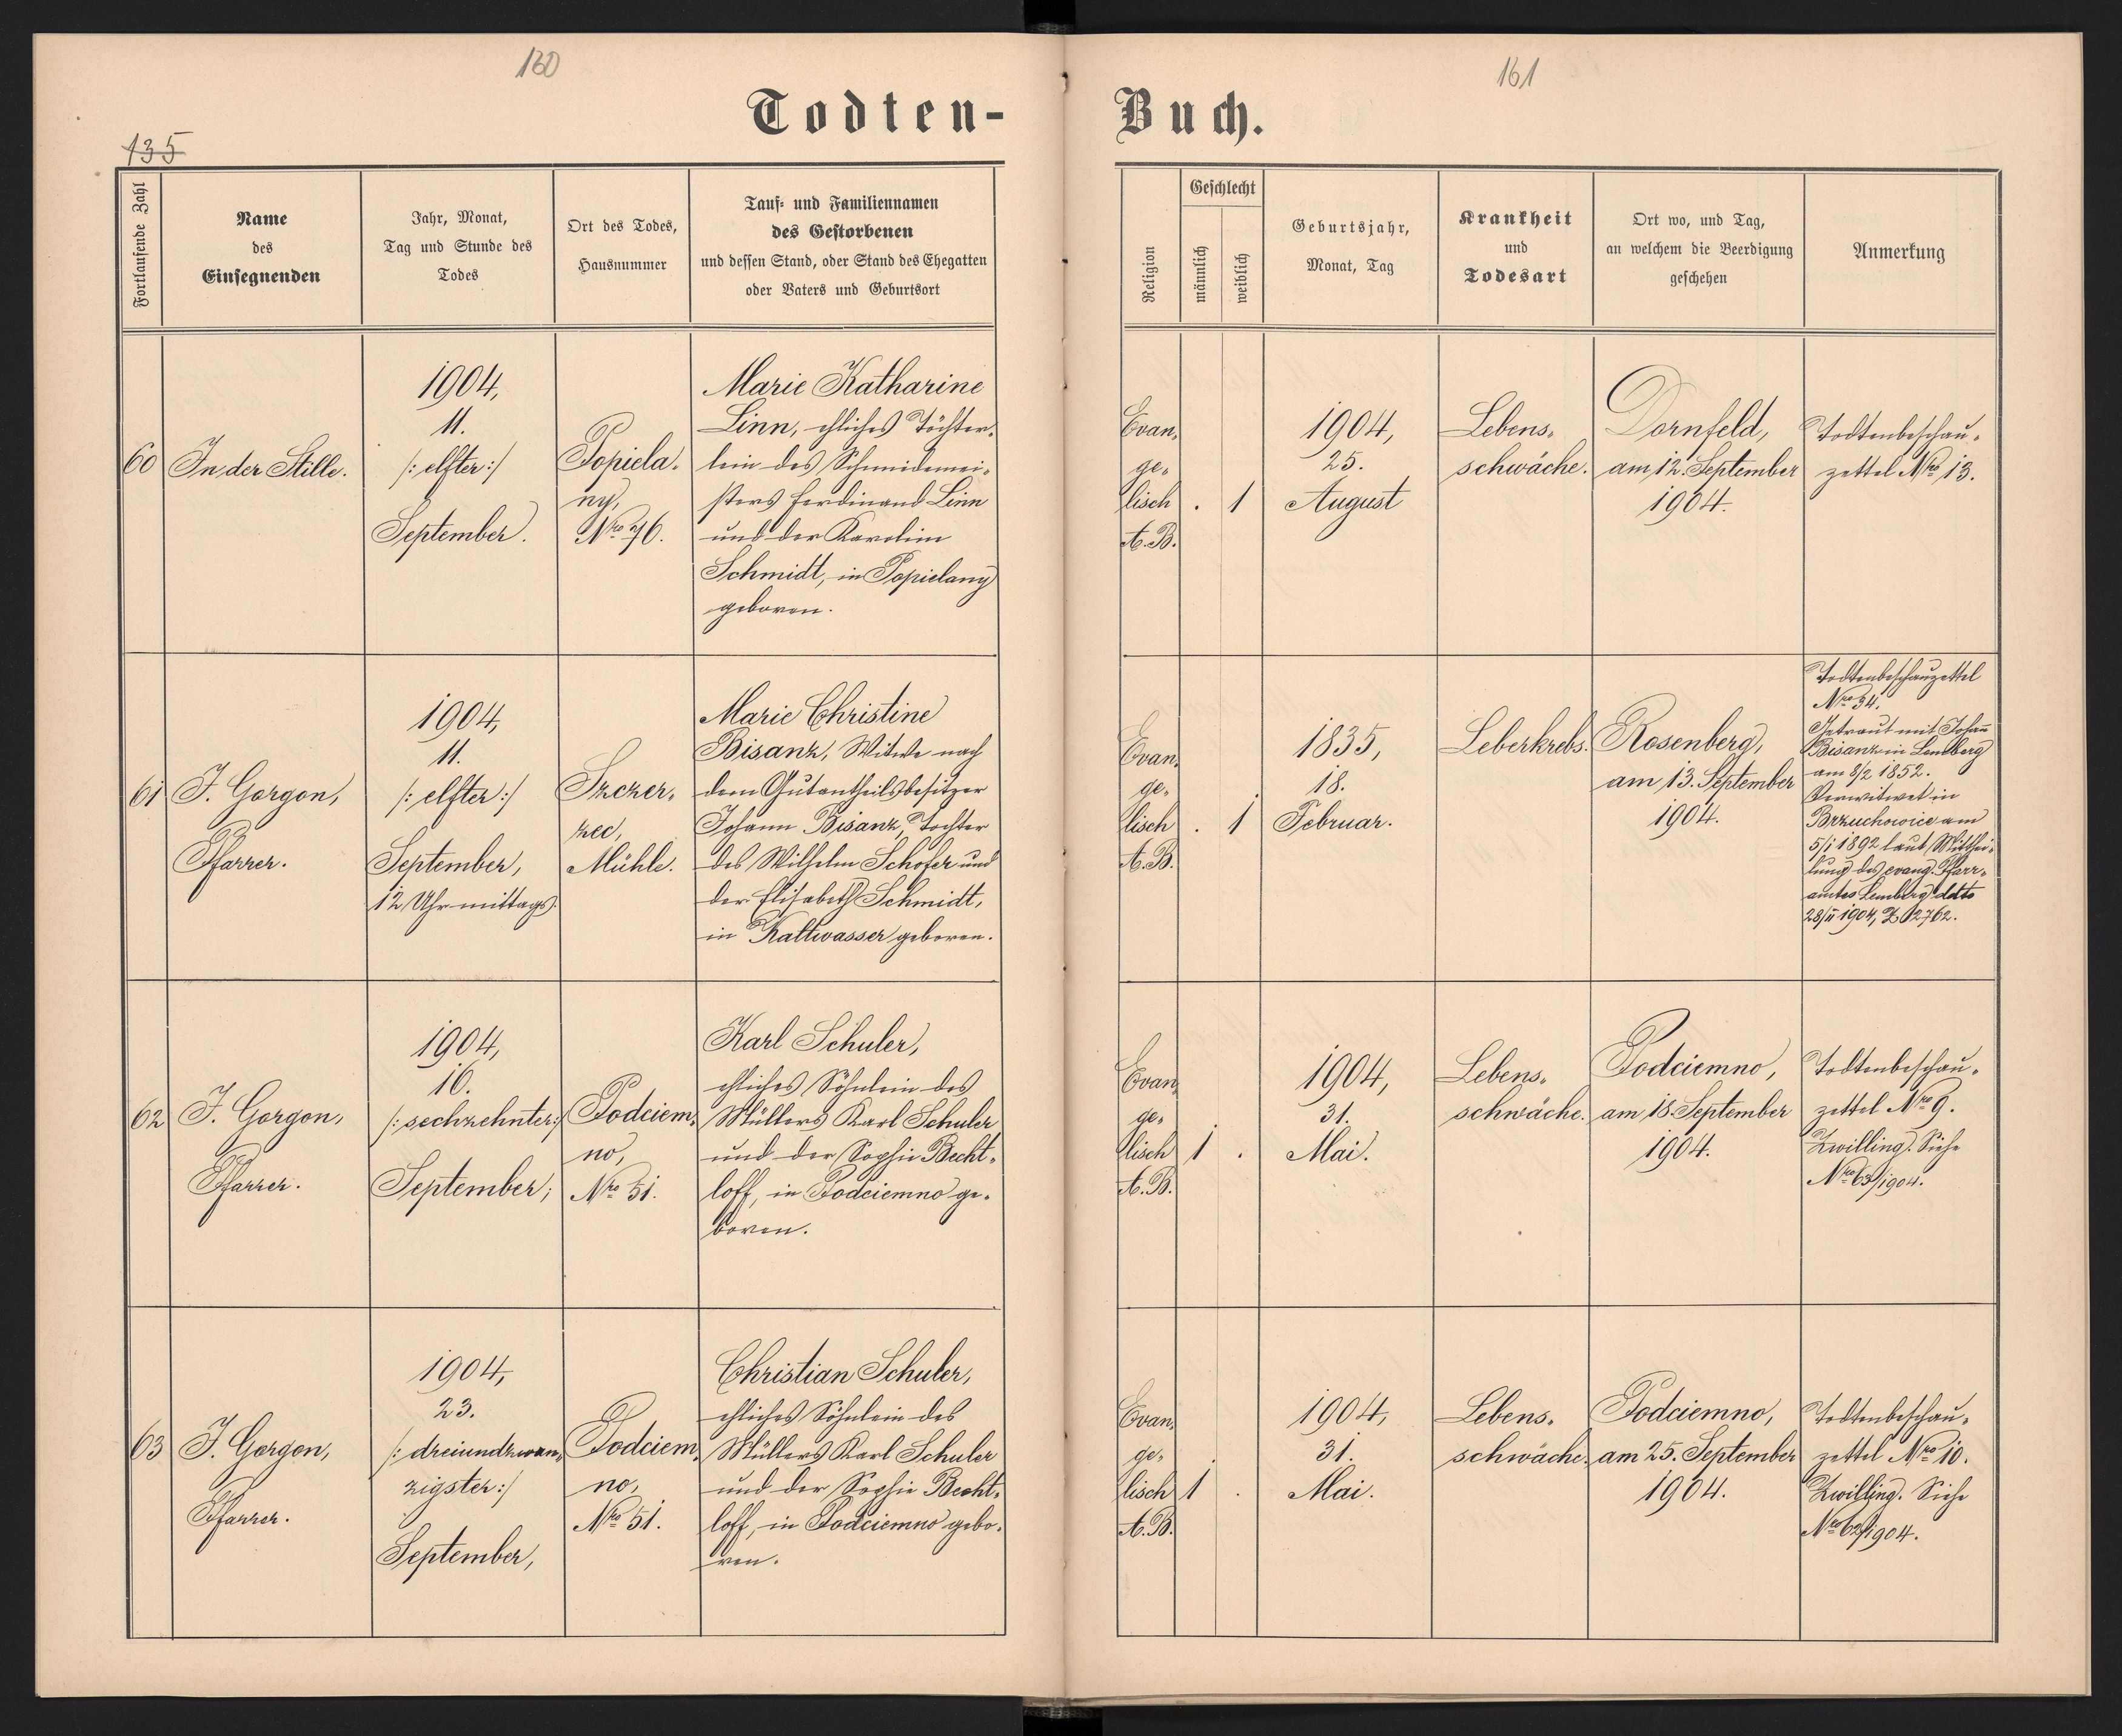 160
161
Todten-
Buch.
135
Fortlaufende Zahl
Name
des
Einsegnenden
Jahr, Monat,
Tag und Stunde des
Todes
Ort des Todes,
Hausnummer
Tauf- und Familiennamen
des Gestorbenen
und dessen Stand, oder Stand des Ehegatten
oder Vaters und Geburtsort
Religion
Geschlecht
männlich
weiblich
Geburtsjahr,
Monat, Tag
Krankheit
und
Todesart
Ort wo, und Tag,
an welchem die Beerdigung
geschehen
Anmerkung
60
In der Stille.
1904,
11.
/: elfter :/
September.
Popiela-
ny,
Nro 76.
Marie Katharine
Linn, ehliches Töchter-
lein des Schmidemei-
sters Ferdinand Linn
und der Karolin
Schmidt, in Popielany
geboren.
Evan-
ge-
lisch
A.B.
.
1
1904,
25.
August
Lebens-
schwäche.
Dornfeld,
am 12. September
1904.
Todtenbeschau-
zettel Nro 13.
61
J. Gorgon,
Pfarrer.
1904,
11.
/: elfter :/
September,
12 Uhr mittags.
Szczer-
zec,
Mühle.
Marie Christine
Bisanz, Witwe nach
dem Gutantheilsbesitzer
Johann Bisanz, Tochter
des Wilhelm Schofer und
der Elisabeth Schmidt,
in Kaltwasser geboren.
Evan-
ge-
lisch
A.B.
.
1
1835,
18.
Februar.
Leberkrebs.
Rosenberg,
am 13. September
1904.
Todtenbeschauzettel
Nro 34.
Getraut mit Johann
Bisanz in Lemberg
am 8/2 1852.
Verwitwet in
Brzuchowice am
5/1 1892 laut Mitthei-
lung des evang. Pfarr-
amtes Lemberg ddto
28/11 1904, Z 2762.
62
J. Gorgon,
Pfarrer.
1904,
16.
/: sechzehnter :/
September,
Podciem-
no,
Nro 51.
Karl Schuler,
ehliches Söhnlein des
Müllers Karl Schuler
und der Sophie Becht-
loff, in Podciemno ge-
boren.
Evan-
ge-
lisch
A.B.
1
.
1904,
31.
Mai.
Lebens-
schwäche.
Podciemno,
am 18. September
1904.
Todtenbeschau-
zettel Nro 9.
Zwilling. Siehe
Nro 63/1904.
63
J. Gorgon,
Pfarrer.
1904,
23.
/: dreiundzwan-
zigster :/
September,
Podciem-
no,
Nro 51.
Christian Schuler,
ehliches Söhnlein des
Müllers Karl Schuler
und der Sophie Becht-
loff, in Podciemno gebo-
ren.
Evan-
ge-
lisch
A.B.
1
.
1904,
31.
Mai.
Lebens-
schwäche.
Podciemno,
am 25. September
1904.
Todtenbeschau-
zettel Nro 10.
Zwilling. Siehe
Nro 62/1904.